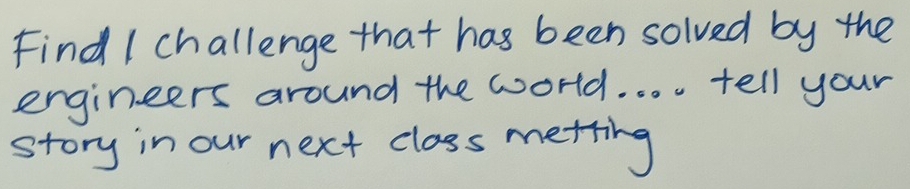 Find 1 challenge that has been solved by the
engineers around the world.... tell your
story in our next class metting